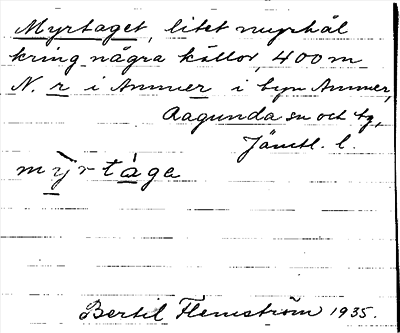 Myrtaget, litet myrhål
kring några källor, 400 m
N. r i Ammer i byn Ammer,
Ragunda sn och tg,
Jämtl. l.
myrtåga
Bertil Flemström 1935.